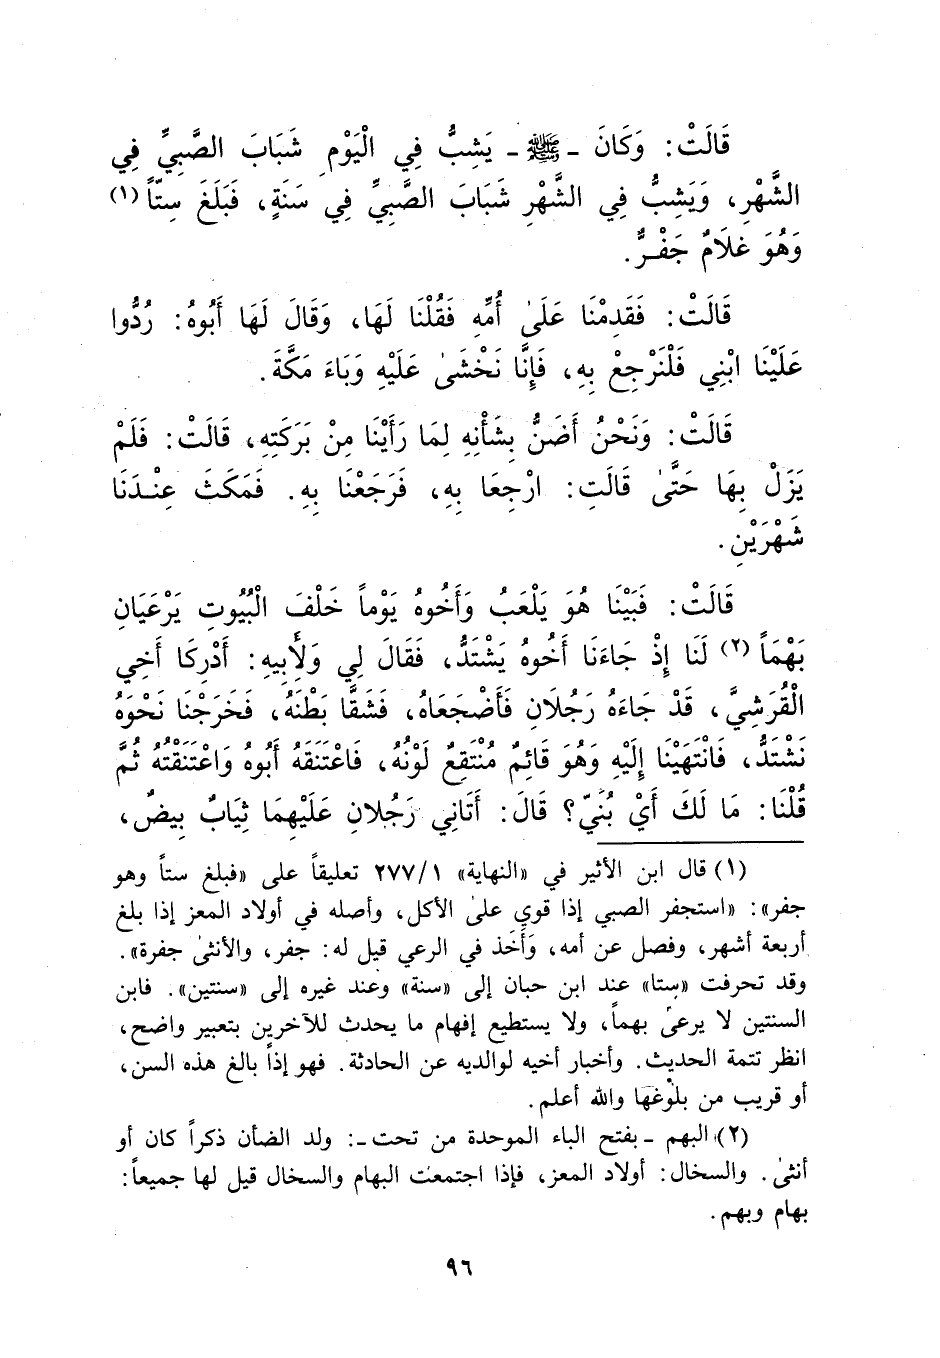 قَالَتْ: وَكَانَ - ﷺ - يَشِبُّ فِي الْيَوْمِ شَبَابَ الصَّبِيِّ فِي
الشَّهْرِ، وَيَشِبُّ فِي الشَّهْرِ شَبَابَ الصَّبِيِّ فِي سَنَةٍ، فَبَلَغَ سِتّاً (١)
وَهُوَ غلَامٌ جَفْرٌ.
قَالَتْ: فَقَدِمْنَا عَلَىٰ أُمِّهِ فَقُلْنَا لَهَا، وَقَالَ لَهَا أَبُوهُ: رُدُّوا
عَلَيْنَا ابْنِي فَلْنَرْجِعْ بِهِ، فَإِنَّا نَخْشَىٰ عَلَيْهِ وَبَاءَ مَكَّةَ.
قَالَتْ: وَنَحْنُ أَضَنُّ بِشَأْنِهِ لِمَا رَأَيْنَا مِنْ بَرَكَتِهِ، قَالَتْ: فَلَمْ
يَزَلْ بِهَا حَتَّىٰ قَالَتِ: ارْجِعَا بِهِ، فَرَجَعْنَا بِهِ. فَمَكَثَ عِنْدَنَا
شَهْرَيْنِ.
قَالَتْ: فَبَيْنَا هُوَ يَلْعَبُ وَأَخُوهُ يَوْماً خَلْفَ الْبُيُوتِ يَرْعَيَانِ
بَهْمَاً (٢) لَنَا إِذْ جَاءَنَا أَخُوهُ يَشْتَدُّ، فَقَالَ لِي وَلِأَبِيهِ: أَدْرِكَا أَخِي
الْقُرَشِيَّ، قَدْ جَاءَهُ رَجُلَانِ فَأَضْجَعَاهُ، فَشَقَّا بَطْنَهُ، فَخَرَجْنَا نَحْوَهُ
نَشْتَدُّ، فَانْتَهَيْنَا إِلَيْهِ وَهُوَ قَائِمٌ مُنْتَقِعٌ لَوْنُهُ، فَاعْتَنَقَهُ أَبُوهُ وَاعْتَنَقْتُهُ ثُمَّ
قُلْنَا: مَا لَكَ أَيْ بُنَيّ؟ قَالَ: أَتَانِي رَجُلَانِ عَلَيْهِمَا ثِيَابٌ بِيضٌ،
(١) قال ابن الأثير في «النهاية» ٢٧٧/١ تعليقاً على «فبلغ ستاً وهو
جفر»: «استجفر الصبي إذا قوي علىٰ الأكل، وأصله في أولاد المعز إذا بلغ
أربعة أشهر، وفصل عن أمه، وَأخَذ في الرعي قيل له: جفر، والأنثىٰ جفرة».
وقد تحرفت «سِتا» عند ابن حبان إلى «سنة» وعند غيره إلى «سنتين». فابن
السنتين لا يرعىٰ بهماً، ولا يستطيع إفهام ما يحدث للآخرين بتعبير واضح،
انظر تتمة الحديث. وأخبار أخيه لوالديه عن الحادثة. فهو إذاً بالغ هذه السن،
أو قريب من بلوغها والله أعلم.
(٢) البهم - بفتح الباء الموحدة من تحت -: ولد الضأن ذكراً كان أو
أنثىٰ. والسخال: أولاد المعز، فإذا اجتمعت البهام والسخال قيل لها جميعاً:
بهام وبهم.
٩٦